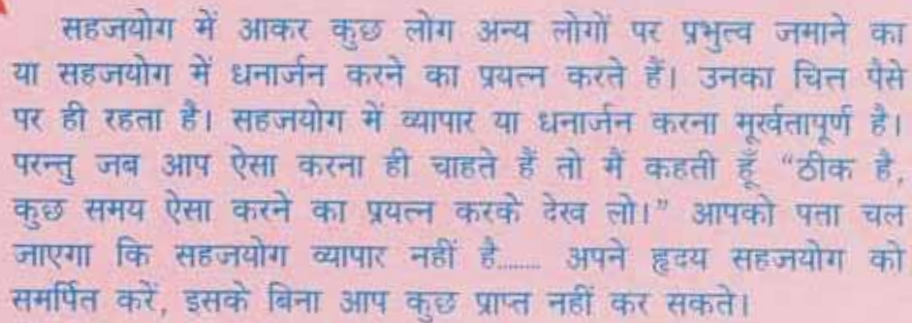 सहजयोग में आकर कुछ लोग अन्य लोगों पर प्रभुत्व जमाने का
या सहजयोग में धनार्जन करने का प्रयत्न करते हैं। उनका चित्त पैसे
पर ही रहता है। सहजयोग में व्यापार या धनार्जन करना मूर्खतापूर्ण है।
परन्तु जब आप ऐसा करना ही चाहते हैं तो मैं कहती हूँ “ठीक है,
कुछ समय ऐसा करने का प्रयत्न करके देख लो।” आपको पता चल
जाएगा कि सहजयोग व्यापार नहीं है........ अपने हृदय सहजयोग को
समर्पित करें, इसके बिना आप कुछ प्राप्त नहीं कर सकते।